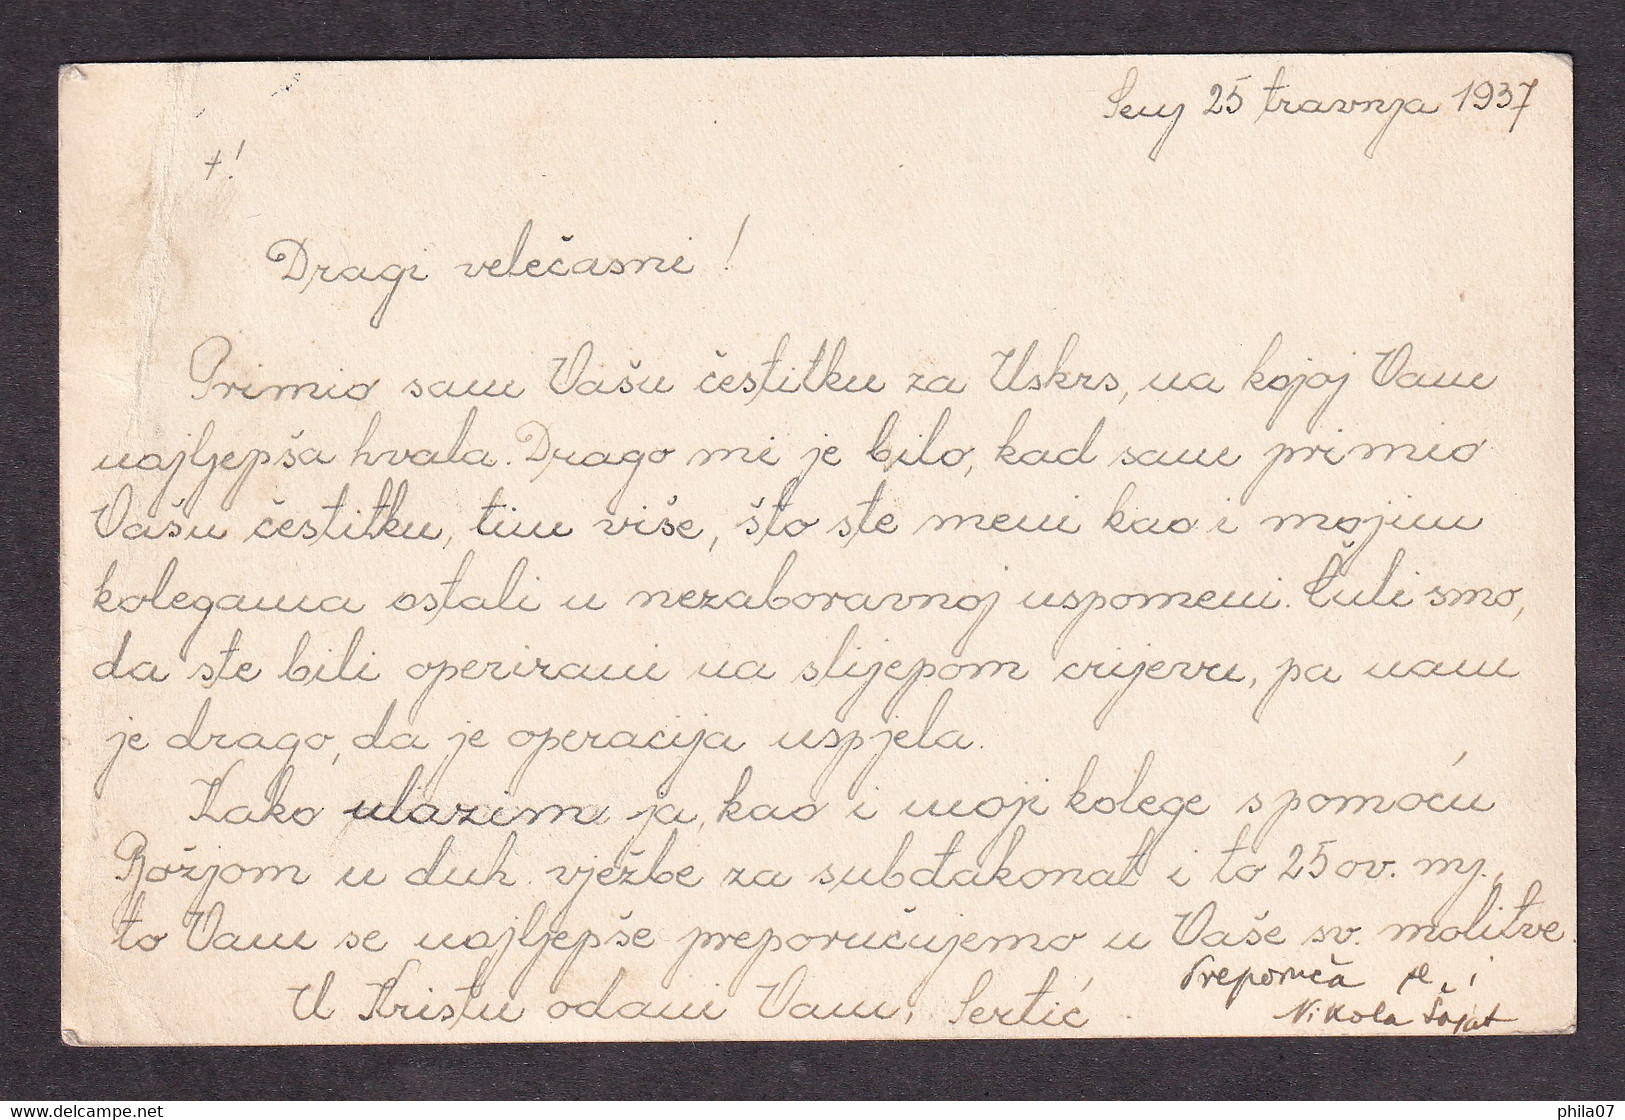 Senj 25 travnja 1937
+!
Dragi velečasni!
Primio sam Vašu čestitku za Uskrs, na kojoj Vam
najljepša hvala. Drago mi je bilo, kad sam primio
Vašu čestitku, tim više, što ste meni kao i mojim
kolegama ostali u nezaboravnoj uspomeni. Čuli smo,
da ste bili operirani na slijepom crijevu, pa nam
je drago, da je operacija uspjela.
Kako ulazim ja, kao i moji kolege s pomoću
Božjom u duh. vježbe za subđakonat i to 25 ov. mj.,
to Vam se najljepše preporučujemo u Vaše sv. molitve.
U Kristu odani Vam, Sertić
Preporuča se i
Nikola Šojat
phila07